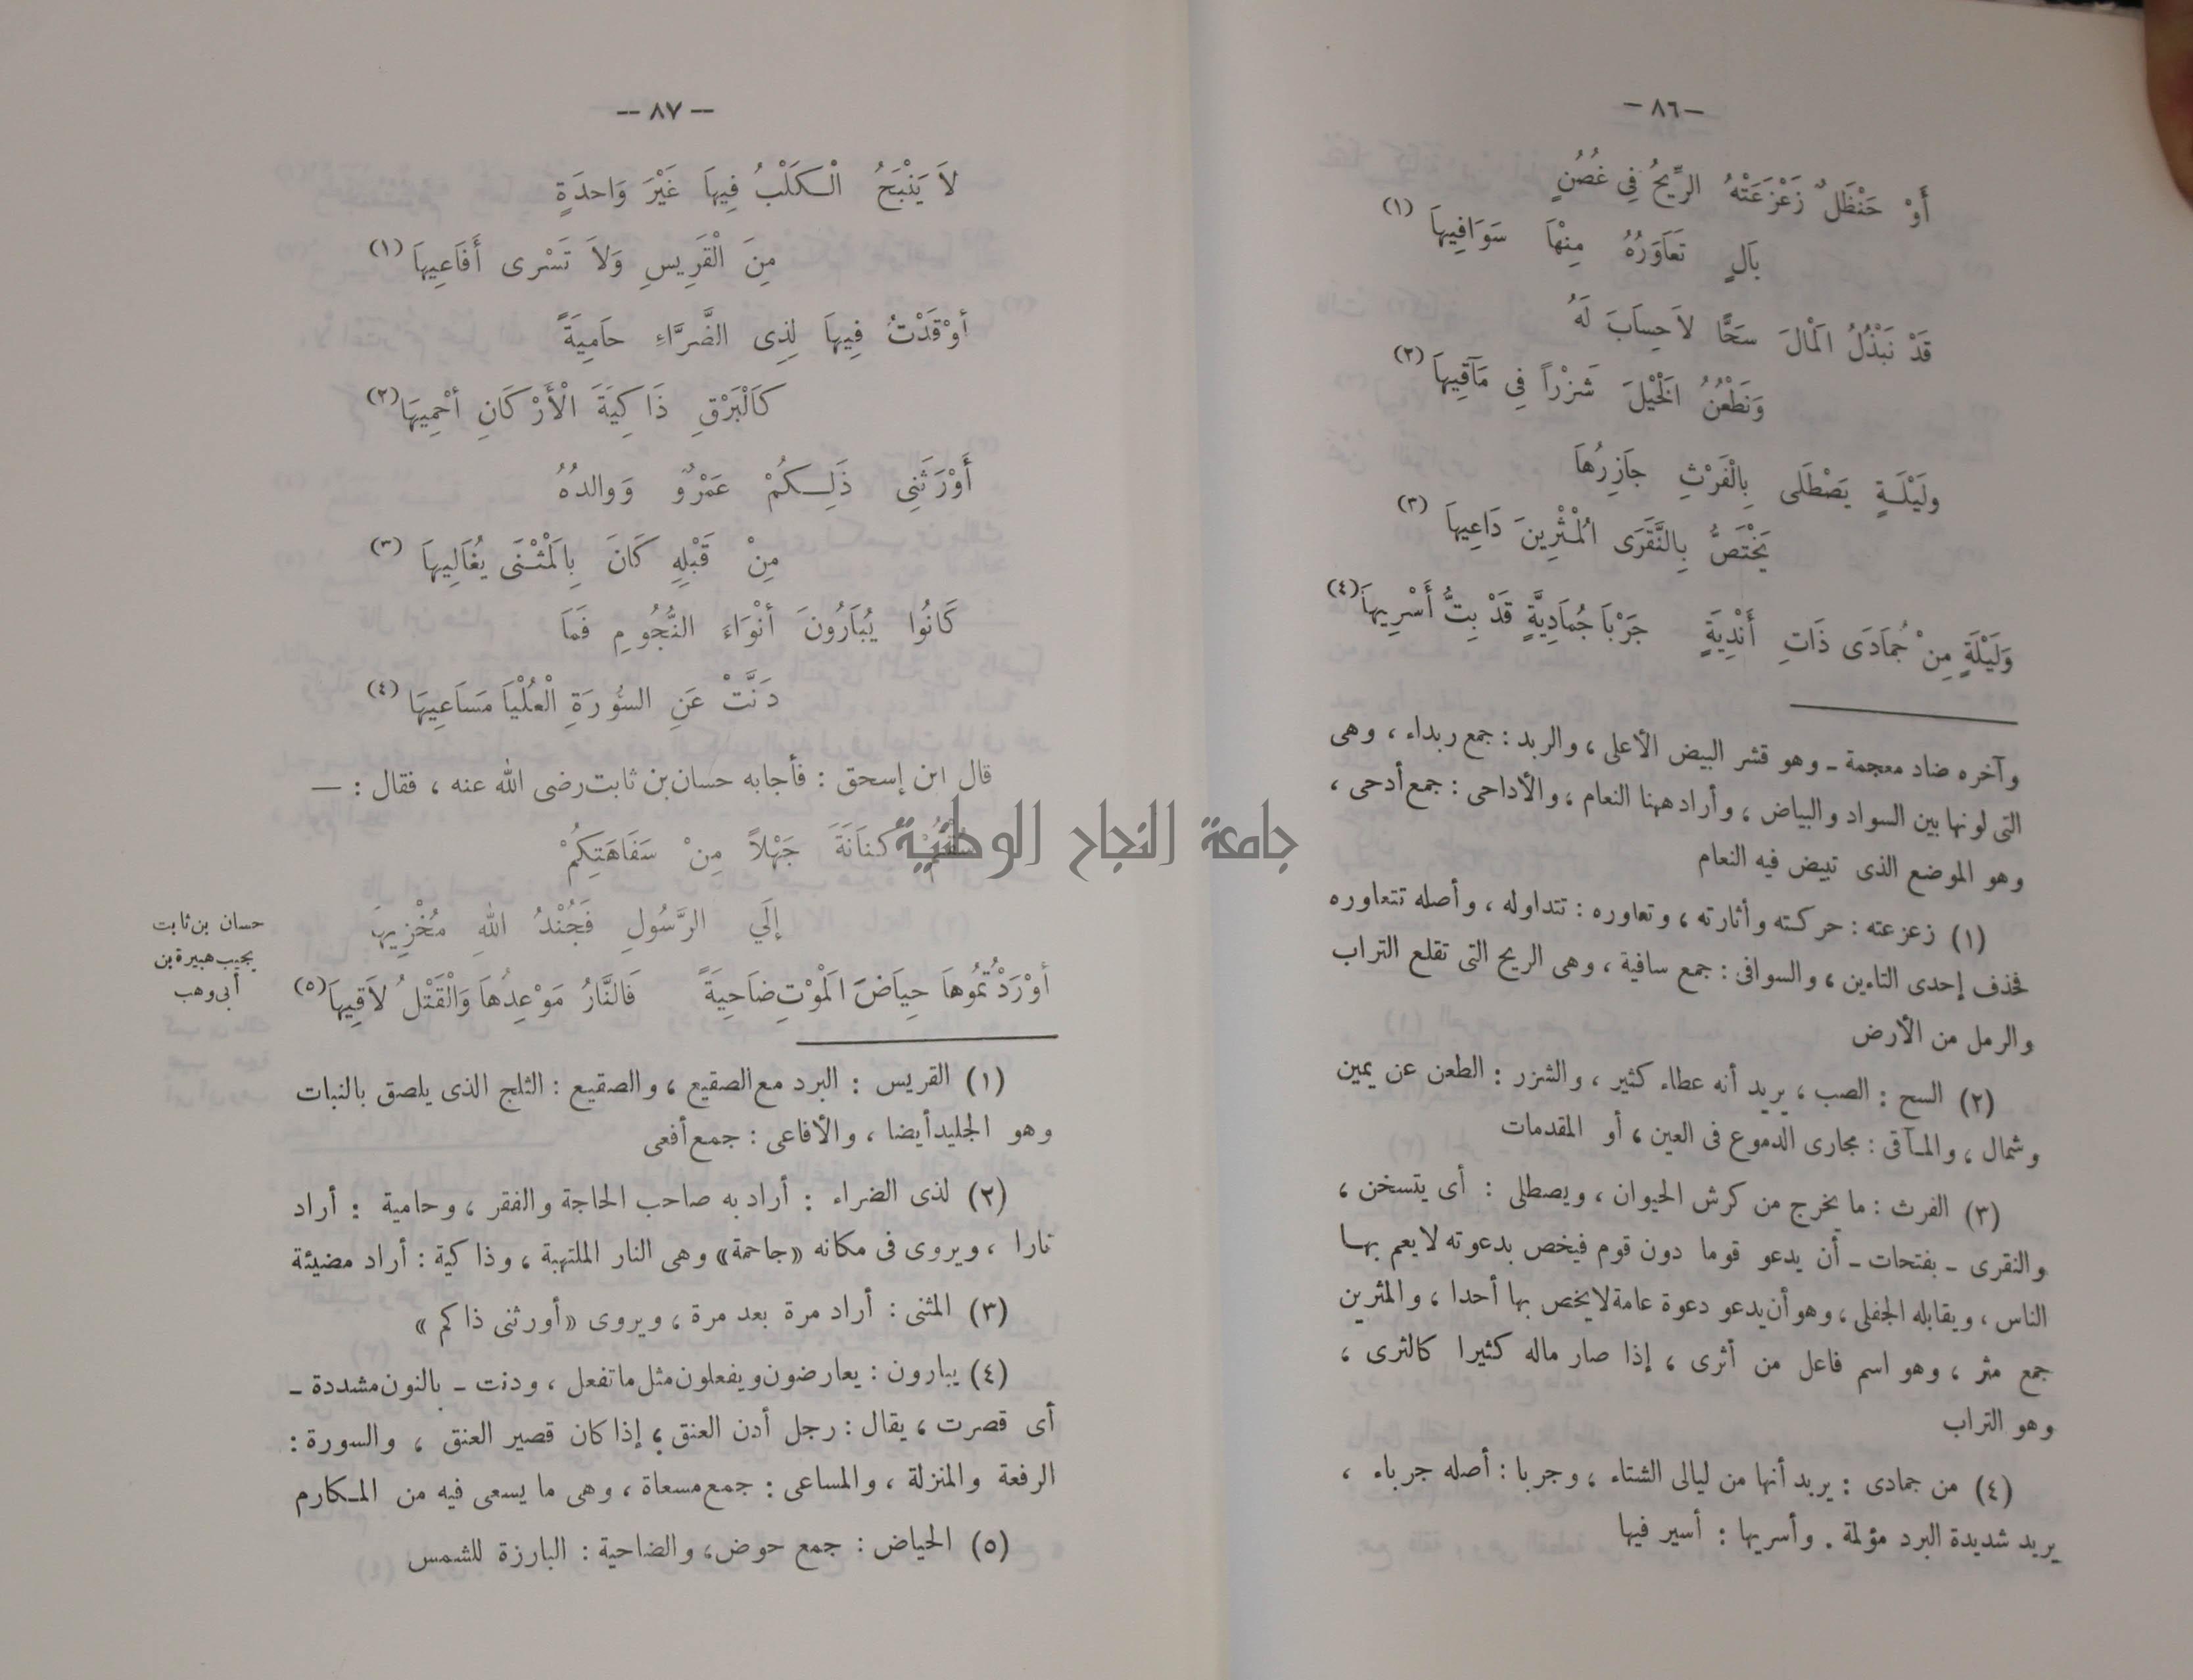 — ٨٦ —
أَوْ حَنْظَلٌ زَعْزَعَتْهُ الرِّيحُ فِي غُصُنٍ
بَالٍ تَعَاوَرُهُ مِنْهَا سَوَافِيهَا (١)
قَدْ نَبْذُلُ الْمَالَ سَحًّا لاَ حِسَابَ لَهُ
وَنَطْعُنُ الْخَيْلَ شَزْراً فِي مَآقِيهَا (٢)
ولَيْلَةٍ يَصْطَلَى بِالْفَرْثِ جَازِرُهَا
يَخْتَصُّ بِالنَّقَرَى الْمُثْرِينَ دَاعِيهَا (٣)
وَلَيْلَةٍ مِنْ جُمَادَى ذَاتِ أَنْدِيَةٍ جَرْبَا جُمَادِيَّةٍ قَدْ بِتُّ أَسْرِيهَا (٤)
وآخره ضاد معجمة ـ وهو قشر البيض الأعلى ، والربد : جمع ربداء ، وهى
التى لونها بين السواد والبياض ، وأراد ههنا النعام ، والأداحى : جمع أدحى ،
وهو الموضع الذى تبيض فيه النعام
(١) زعزعته : حركته وأثارته ، وتعاوره : تتداوله ، وأصله تتعاوره
فحذف إحدى التاءين ، والسوافى : جمع سافية ، وهى الريح التى تقلع التراب
والرمل من الأرض
(٢) السح : الصب ، يريد أنه عطاء كثير ، والشزر : الطعن عن يمين
وشمال ، والمـآقى : مجارى الدموع فى العين ، أو المقدمات
(٣) الفرث : ما يخرج من كرش الحيوان ، ويصطلى : أى يتسخن ،
والنقرى ـ بفتحات ـ أن يدعو قوما دون قوم فيخص بدعوته لا يعم بهـا
الناس ، ويقابله الجفلى ، وهو أن يدعو دعوة عامة لا يخص بها أحدا ، والمثرين
جمع مثر ، وهو اسم فاعل من أثرى ، إذا صار ماله كثيرا كالثرى ،
وهو التراب
(٤) من جمادى : يريد أنها من ليالى الشتاء ، وجربا : أصله جرباء ،
يريد شديدة البرد مؤلمة . وأسريها : أسير فيها
— ٨٧ —
لاَ يَنْبَحُ الْـكَلْبُ فِيهَا غَيْرَ وَاحدَةٍ
مِنَ الْقَرِيسِ وَلاَ تَسْرى أَفَاعِيهَا (١)
أوْقَدْتُ فِيهَا لِذِى الضَّرَّاءِ حَامِيَةً
كَالْبَرْقِ ذَاكِيَةَ الْأَرْكَانِ أحْمِيهَا (٢)
أَوْرَثَنِى ذَلِـكُمْ عَمْرٌو وَوالدُهُ
مِنْ قَبْلِهِ كَانَ بِالْمَثْـنَى يُغَالِيهَا (٣)
كَانُوا يُبَارُونَ أنْوَاءَ النُّجُومِ فَمَا
دَنَّتْ عَنِ السُّورَةِ الْعُلْيَا مَسَاعِيهَا (٤)
قال ابن إسحق : فأجابه حسان بن ثابت رضى الله عنه ، فقال : —
سُقْتُمْ كنَانَةَ جَهْلاً مِنْ سَفَاهَتِكُمْ
إلَي الرَّسُولِ فَجُنْدُ اللهِ مُخْزِيهَا
أوْرَدْتُمُوهَا حِيَاضَ الْمَوْتِ ضَاحِيَةً فَالنَّارُ مَوْعِدُهَا وَالْقَتْلُ لاَقِيهَا (٥)
حسان بن ثابت
يجيب هبيرة بن
أبى وهب
(١) القريس : البرد مع الصقيع ، والصقيع : الثلج الذى يلصق بالنبات
وهو الجليد أيضا ، والأفاعى : جمع أفعى
(٢) لذى الضراء : أراد به صاحب الحاجة والفقر ، وحامية : أراد
نارا ، ويروى فى مكانه «جاحمة» وهى النار الملتهبة ، وذاكية : أراد مضيئة
(٣) المثنى : أراد مرة بعد مرة ، ويروى «أورثنى ذاكم»
(٤) يبارون : يعارضون ويفعلون مثل ما تفعل ، ودنت ـ بالنون مشددة ـ
أى قصرت ، يقال : رجل أدن العنق ، إذا كان قصير العنق ، والسورة :
الرفعة والمنزلة ، والمساعى : جمع مسعاة ، وهى ما يسعى فيه من المـكارم
(٥) الحياض : جمع حوض ، والضاحية : البارزة للشمس
جامعة النجاح الوطنية